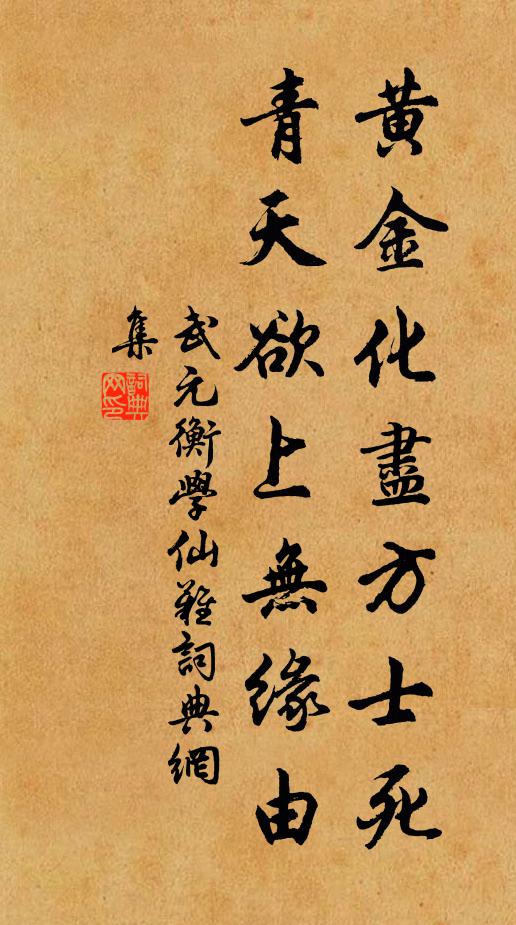 黄金化盡方士死
青天欲上無緣由
武元衡學仙難詞典網
集
詞典
网印